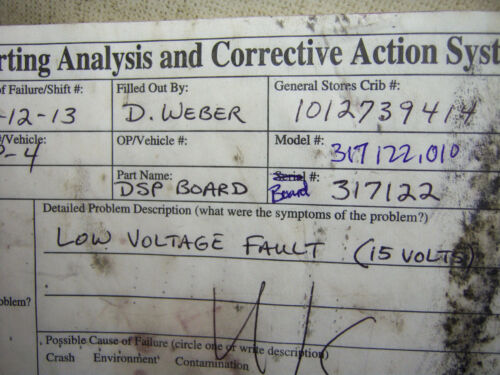 rting Analysis and Corrective Action Syst
of Failure/Shift #: Filled Out By: General Stores Crib #:
-12-13 D. WEBER 1012739414
#/Vehicle: OP/Vehicle #: Model #:
-4 317122.010
Part Name: Serial #:
DSP BOARD Board 317122
Detailed Problem Description (what were the symptoms of the problem?)
LOW VOLTAGE FAULT (15 VOLTS)
oblem?
Possible Cause of Failure (circle one or write description)
Crash Environment Contamination